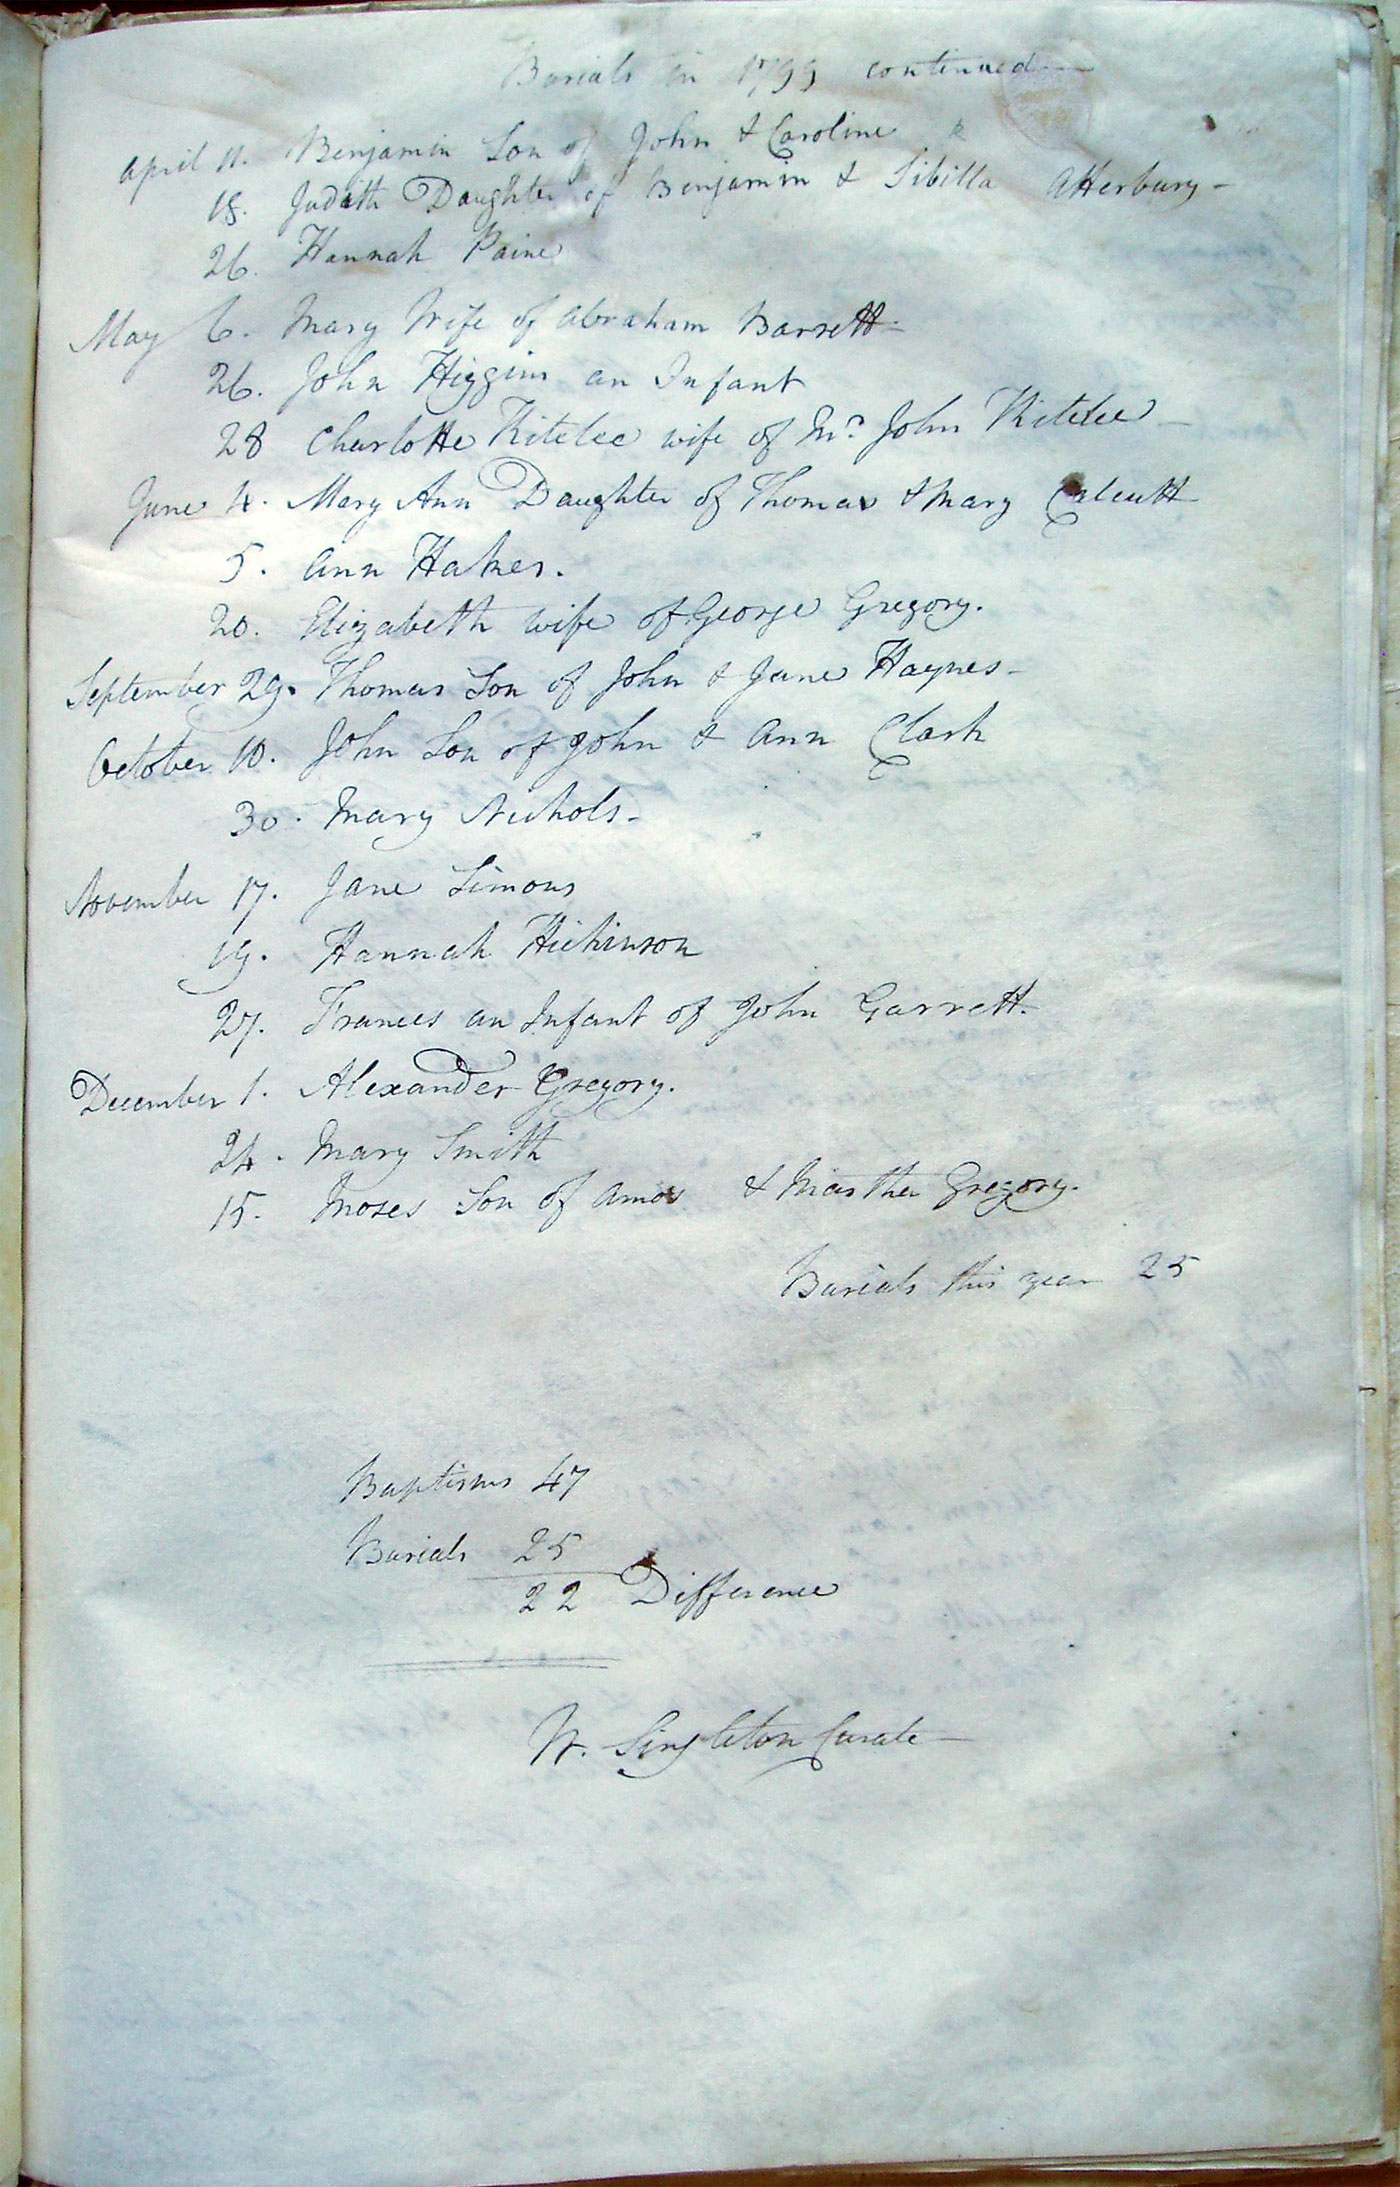 Burials in 1799 continued
April 11. Benjamin Son of John & Caroline
18. Judith Daughter of Benjamin & Sibilla Atterbury -
26. Hannah Paine
May 6. Mary Wife of Abraham Barrett -
26. John Higgins an Infant
28 Charlotte Kitelee wife of Mr. John Kitelee -
June 4. Mary Ann Daughter of Thomas & Mary Calcutt
5. Ann Hakes.
20. Elizabeth wife of George Gregory.
September 29. Thomas Son of John & Jane Haynes -
October 10. John Son of John & Ann Clark
30. Mary Nichols -
November 17. Jane Simons
19. Hannah Hickinson
27. Frances an Infant of John Garrett.
December 1. Alexander Gregory.
24. Mary Smith
15. Moses Son of Amos & Martha Gregory.
Burials this year 25
Baptisms 47
Burials 25
22 Difference
W. Singleton Curate -